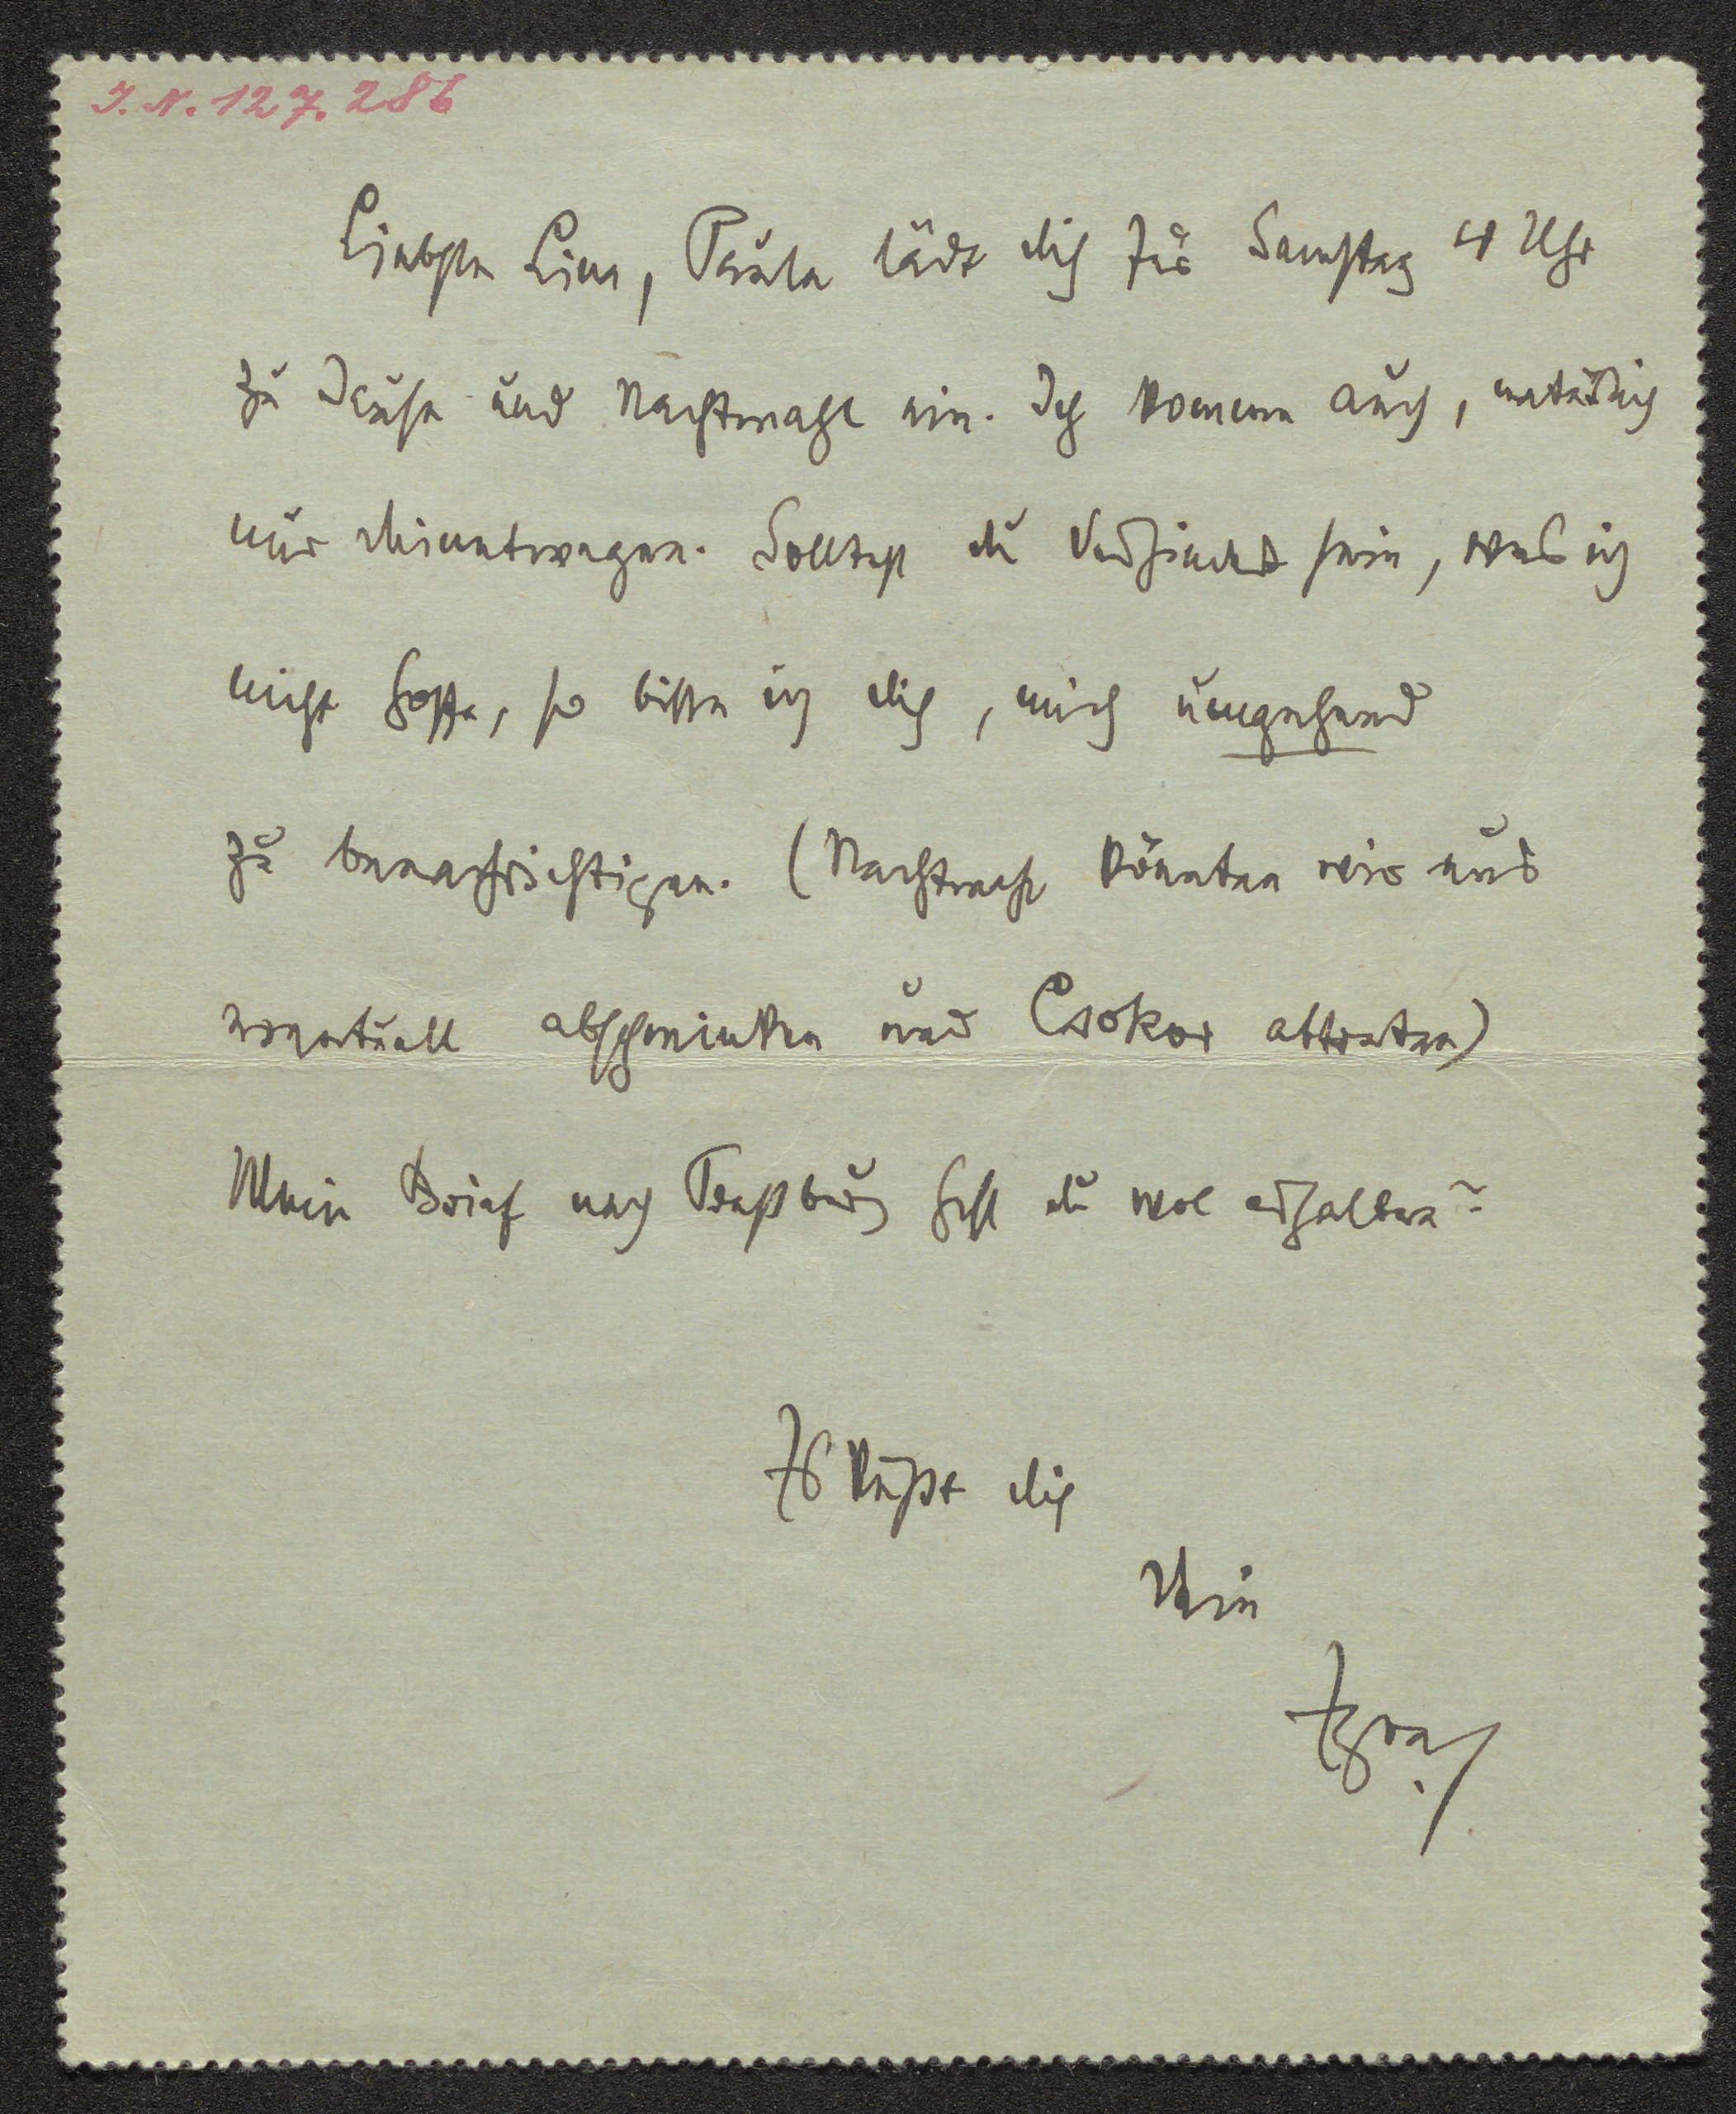 I. N. 127.286
Liebste Lina, Paula lädt dich für Samstag 4 Uhr
zu Jause und Nachtmahl ein. Ich komme auch, natürlich
nur deinetwegen. Solltest du verhindert sein, was ich
nicht hoffe, so bitte ich dich, mich umgehend
zu benachrichtigen. (Nachtmahl könnten wir uns
eventuell abschminken und Csokor abtreten)
Mein Brief nach Pressburg hast du wol erhalten?
Es küsst dich
Dein